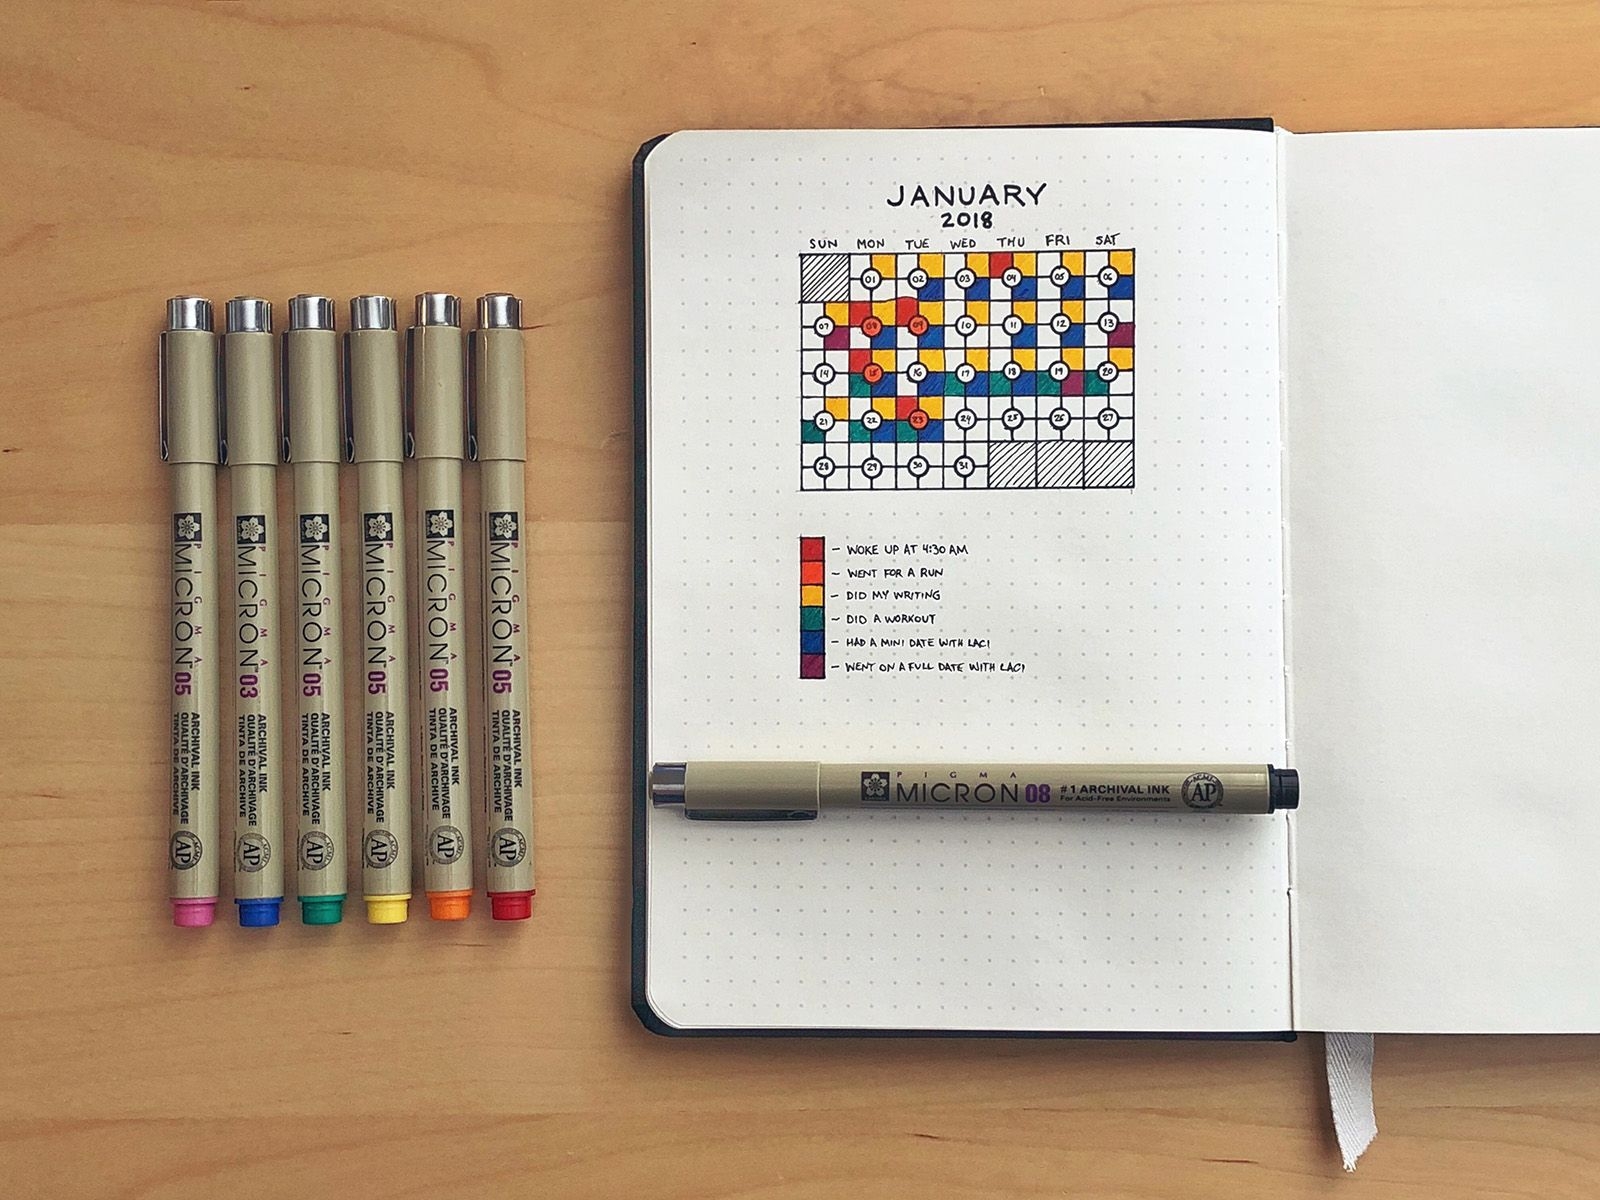 JANUARY
2018
SUN MON TUE WED THU FRI SAT
01 02 03 04 05 06
07 08 09 10 11 12 13
14 15 16 17 18 19 20
21 22 23 24 25 26 27
28 29 30 31
- WOKE UP AT 4:30 AM
- WENT FOR A RUN
- DID MY WRITING
- DID A WORKOUT
- HAD A MINI DATE WITH LACI
- WENT ON A FULL DATE WITH LACI
PIGMA
MICRON 08 #1 ARCHIVAL INK
For Acid-Free Environments
ACMI
AP
PIGMA
MICRON 05
ARCHIVAL INK
QUALITÉ D'ARCHIVAGE
TINTA DE ARCHIVE
AP
PIGMA
MICRON 03
ARCHIVAL INK
QUALITÉ D'ARCHIVAGE
TINTA DE ARCHIVE
AP
PIGMA
MICRON 05
ARCHIVAL INK
QUALITÉ D'ARCHIVAGE
TINTA DE ARCHIVE
AP
PIGMA
MICRON 05
ARCHIVAL INK
QUALITÉ D'ARCHIVAGE
TINTA DE ARCHIVE
AP
PIGMA
MICRON 05
ARCHIVAL INK
QUALITÉ D'ARCHIVAGE
TINTA DE ARCHIVE
AP
PIGMA
MICRON 05
ARCHIVAL INK
QUALITÉ D'ARCHIVAGE
TINTA DE ARCHIVE
AP